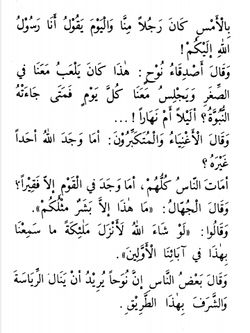 بِالْأَمْسِ كَانَ رَجُلاً مِنَّا وَالْيَوْمَ يَقُوْلُ أَنَا رَسُوْلُ
اللهِ إِلَيْكُمْ!
وَقَالَ أَصْدِقَاءُ نُوْحٍ: هٰذَا كَانَ يَلْعَبُ مَعَنَا فِي
الصِّغَرِ وَيَجْلِسُ مَعَنَا كُلَّ يَوْمٍ فَمَتَى جَاءَتْهُ
النُّبُوَّةُ؟ أَلَيْلاً أَمْ نَهَاراً!...
وَقَالَ الْأَغْنِيَاءُ وَالْمُتَكَبِّرُوْنَ: أَمَا وَجَدَ اللهُ أَحَداً
غَيْرَهُ؟
أَمَاتَ النَّاسُ كُلُّهُمْ، أَمَا وَجَدَ فِي الْقَوْمِ إِلاَّ فَقِيْراً؟
وَقَالَ الْجُهَّالُ: «مَا هٰذَا إِلاَّ بَشَرٌ مِثْلُكُمْ».
وَقَالُوا: «لَوْ شَاءَ اللهُ لَأَنْزَلَ مَلٰئِكَةً مَا سَمِعْنَا
بِهٰذَا فِي آبَائِنَا الْأَوَّلِيْنَ».
وَقَالَ بَعْضُ النَّاسِ إِنَّ نُوْحاً يُرِيْدُ أَنْ يَنَالَ الرِّيَاسَةَ
وَالشَّرَفَ بِهٰذَا الطَّرِيْقِ.